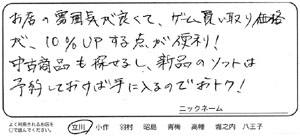 お店の雰囲気が良くて、ゲーム買い取り価格
が、10%UPする点が便利!
中古商品も探せるし、新品のソフトは
予約しておけば手に入るのでおトク!
ニックネーム
よく利用されるお店を
○で囲んでください。
立川 小作 羽村 昭島 青梅 高幡 堀之内 八王子